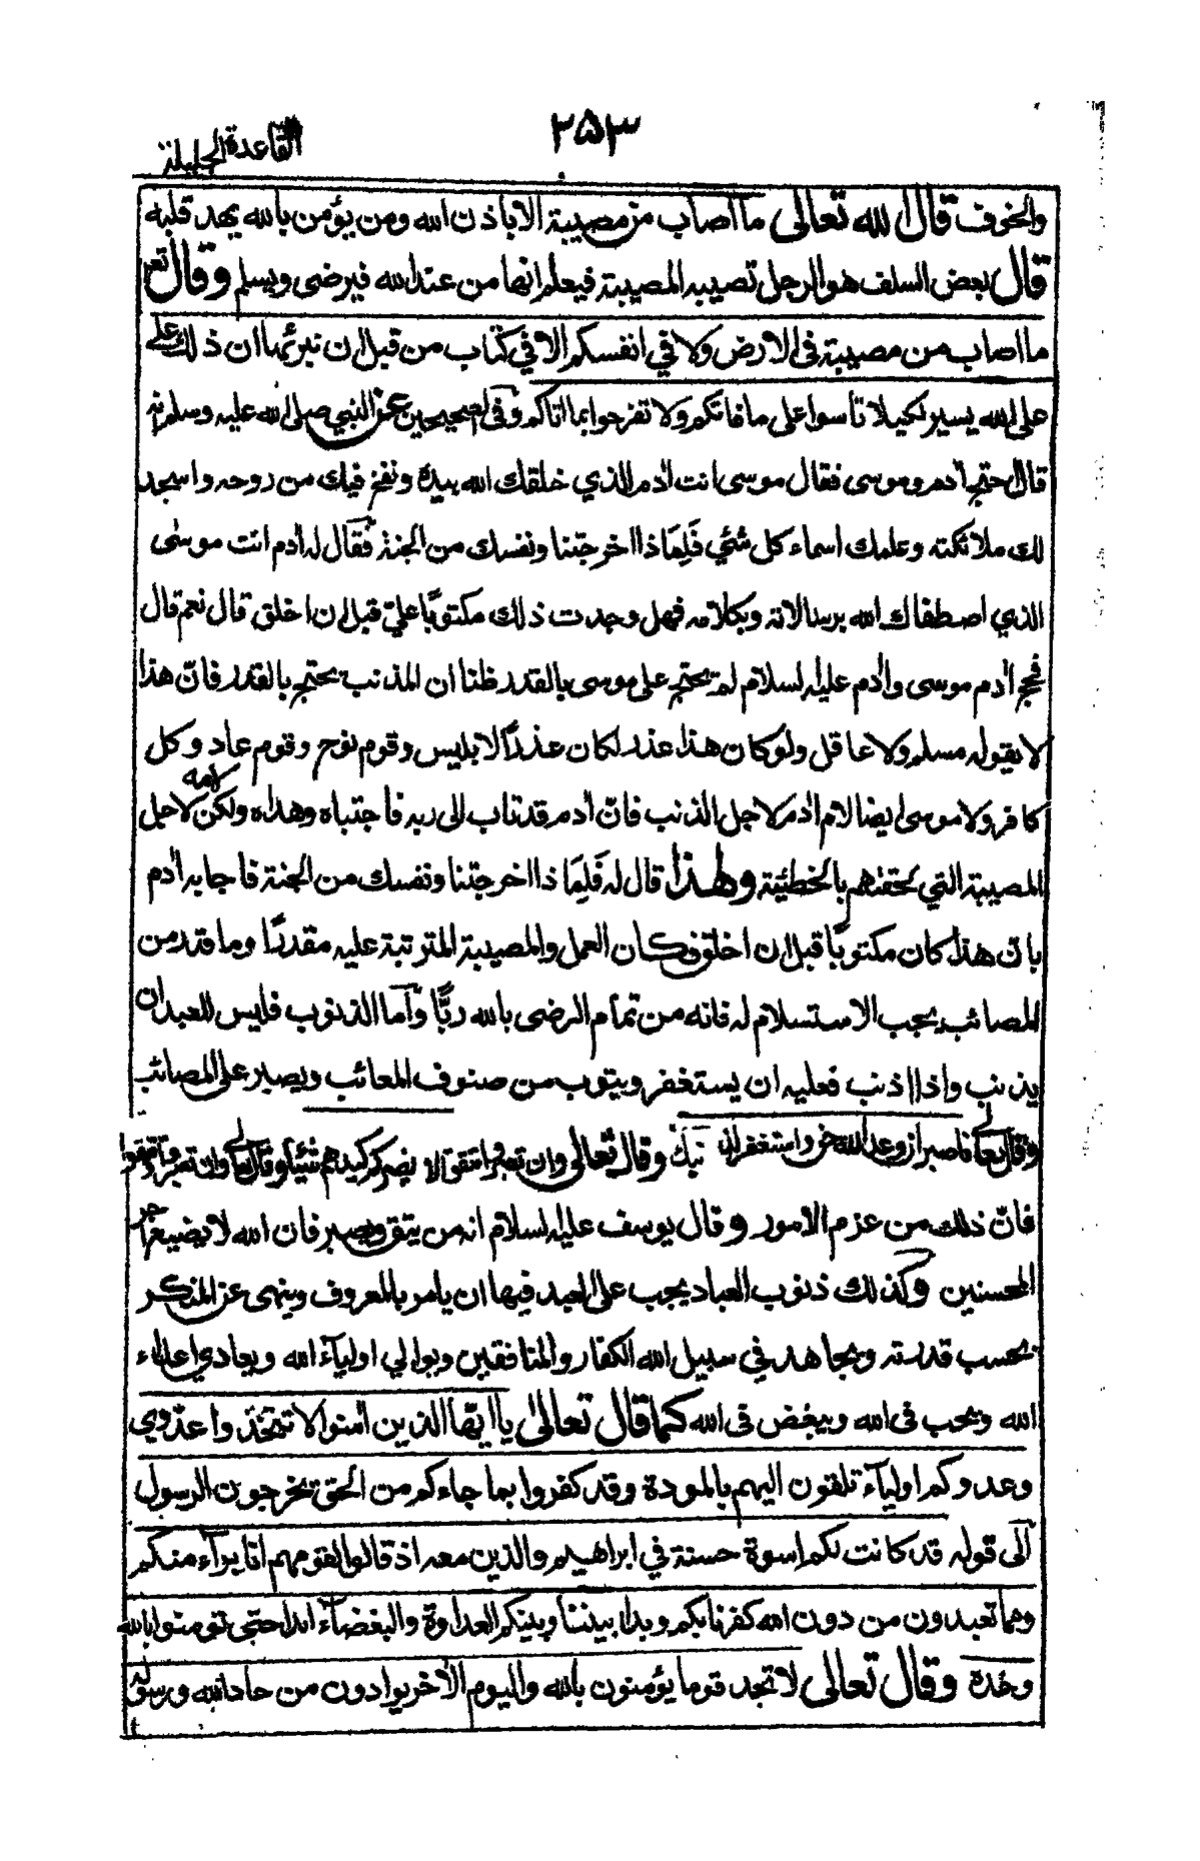 القاعدة الجليلة
٢٥٣
والخوف قال الله تعالى ما اصاب من مصيبة الا باذن الله ومن يؤمن بالله يهد قلبه
قال بعض السلف هو الرجل تصيبه المصيبة فيعلم انها من عند الله فيرضى ويسلم وقال تع
ما اصاب من مصيبة فى الارض ولا في انفسكم الا في كتاب من قبل ان نبرئها ان ذلك على
على الله يسير لكيلا تأسوا على ما فاتكم ولا تفرحوا بما اتاكم وفى الصحيحين عن النبي صلى الله عليه وسلم انه
قال احتج أدم وموسى فقال موسى انت أدم الذي خلقك الله بيده ونفخ فيك من روحه واسجد
لك ملائكته وعلمك اسماء كل شئي فَلِمَا ذا اخرجتنا ونفسك من الجنة فقال له أدم انت موسٰى
الذي اصطفاك الله برسالاته وبكلامه فهل وجدت ذلك مكتوبًا عليّ قبل ان اخلق قال نعم قال
فحج أدم موسى وأدم عليه السلام لم يحتج على موسى بالقدر ظنا ان المذنب يحتج بالقدر فانّ هذا
لا يقوله مسلم ولا عاقل ولو كان هذا عذر لكان عذرًا لابليس وقوم نوح وقوم عاد وكل
كافر ولا موسى ايضا لام أدم لاجل الذنب فانّ أدم قد تاب الى ربه فاجتباه وهداه ولكن لامه لاجل
المصيبة التي لحقتهم بالخطيئة ولهذا قال له فَلِمَا ذا اخرجتنا ونفسك من الجنة فاجابه أدم
بانّ هذا كان مكتوبًا قبل ان اخلق فكان العمل والمصيبة المترتبة عليه مقدرًا وما قدر من
المصائب يجب الاستسلام له فانه من تمام الرضى بالله ربًّا وأما الذنوب فليس للعبد ان
يذنب واذا اذنب فعليه ان يستغفر ويتوب من صنوف المعائب ويصبر على المصائب
وقال تعالى فاصبر ان وعد الله حق واستغفر لذنبك وقال تعالى وان تصبروا وتتقوا لا يضركم كيدهم شيئا وقال تعالى وان تصبروا وتتقوا
فانّ ذلك من عزم الامور وقال يوسف عليه السلام انه من يتق ويصبر فان الله لا يضيع اجر
المحسنين وكذلك ذنوب العباد يجب على العبد فيها ان يامر بالمعروف وينهى عن المنكر
بحسب قدرته ويجاهد في سبيل الله الكفار والمنافقين ويوالي اوليآء الله ويعادي اعداء
الله ويحب فى الله ويبغض فى الله كما قال تعالىٰ يا ايّها الذين أمنوا لا تتخذوا عدّوي
وعدوكم اوليآء تلقون اليهم بالمودة وقد كفروا بما جاءكم من الحق يخرجون الرسول
الى قوله قد كانت لكم اسوة حسنة في ابراهيم والذين معه اذ قالوا لقومهم انا برآء منكم
ومما تعبدون من دون الله كفرنا بكم وبدا بيننا وبينكم العداوة والبغضآء ابدا حتى تؤمنوا بالله
وحده وقال تعالى لا تجد قوما يؤمنون بالله واليوم الأخر يوادون من حاد الله ورسوله